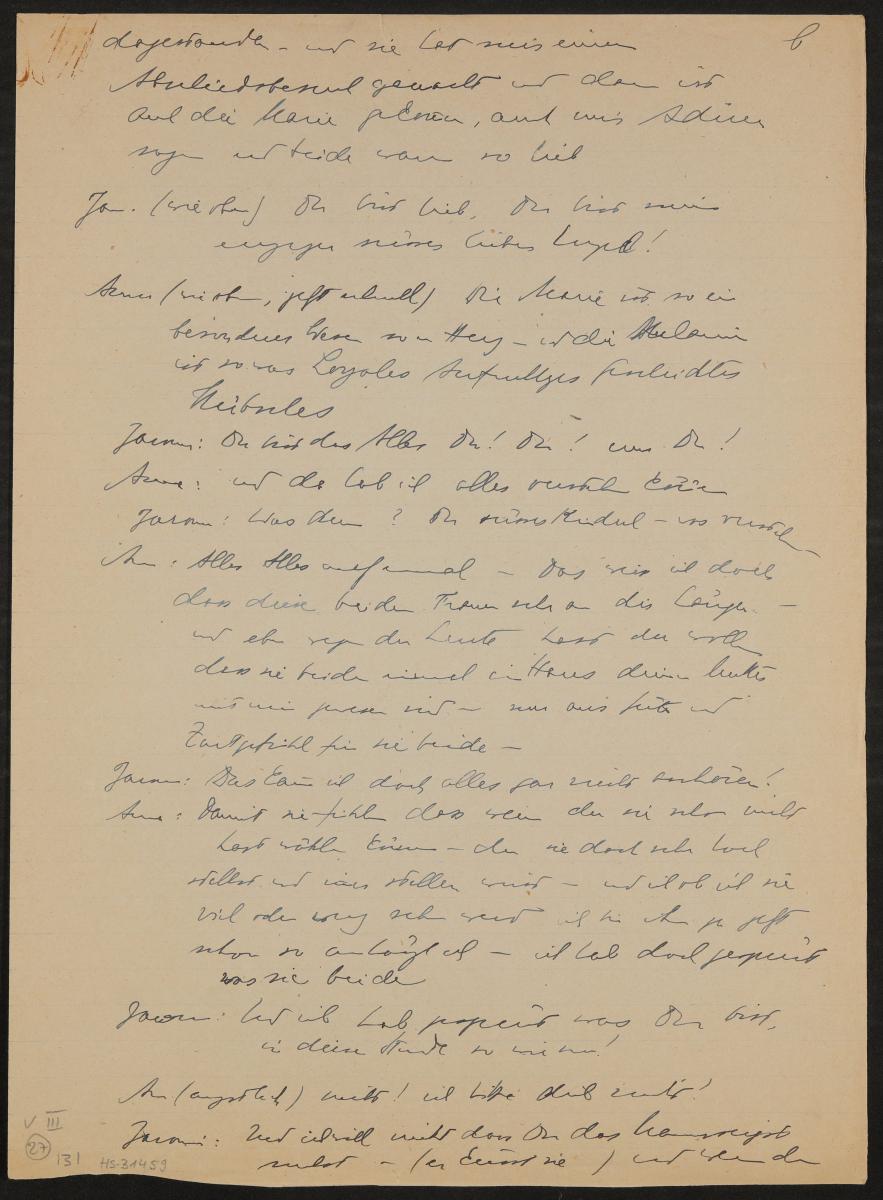 dagestanden – und sie hat mir einen b
Abschiedsbesuch gemacht und dann ist
auch die Marie gekommen, auch mir Adieu
sagen und beide waren so lieb
Jar. (wie oben) Du bist lieb, Du bist mein
einziges süsses liebes Engerl!
Anna (wie oben, sehr schnell) Die Marie ist so ein
besonderes Wesen so ein Herz – und die Melanie
ist so was Loyales Aufrechtes Gescheidtes
Hübsches
Jaromir: Du bist das Alles Du! Du! nur Du!
Anna: und da hab ich alles verstehen können
Jaromir: Was denn? Du süsses Kinderl – was verstehen –
An: Alles Alles auf einmal – Das weiss ich doch
dass diese beiden Frauen sehr an dir hängen –
und eben wegen der Leute hast du wollen
dass sie beide einmal im Haus deiner Mutter
mit mir gewesen sind – nur aus Güte und
Zartgefühl für sie beide –
Jaromir: Das kann ich doch alles gar nicht anhören!
Anna: Damit sie fühlen dass wenn du sie schon nicht
hast wählen können – du sie doch sehr hoch
stellst und immer stellen wirst – und ich ob ich sie
viel oder wenig sehn werd ich bin ihnen ja jetzt
schon so anhänglich – ich hab doch gespürt
was sie beide
Jaromir: Und ich hab gespürt was Du bist,
in dieser Stunde so wie nie!
An (ängstlich) nicht! ich bitte dich nicht!
Jaromir: Und ich will nicht dass Du das
– (er küsst sie) und wenn du
V III
27
131
HS-31459